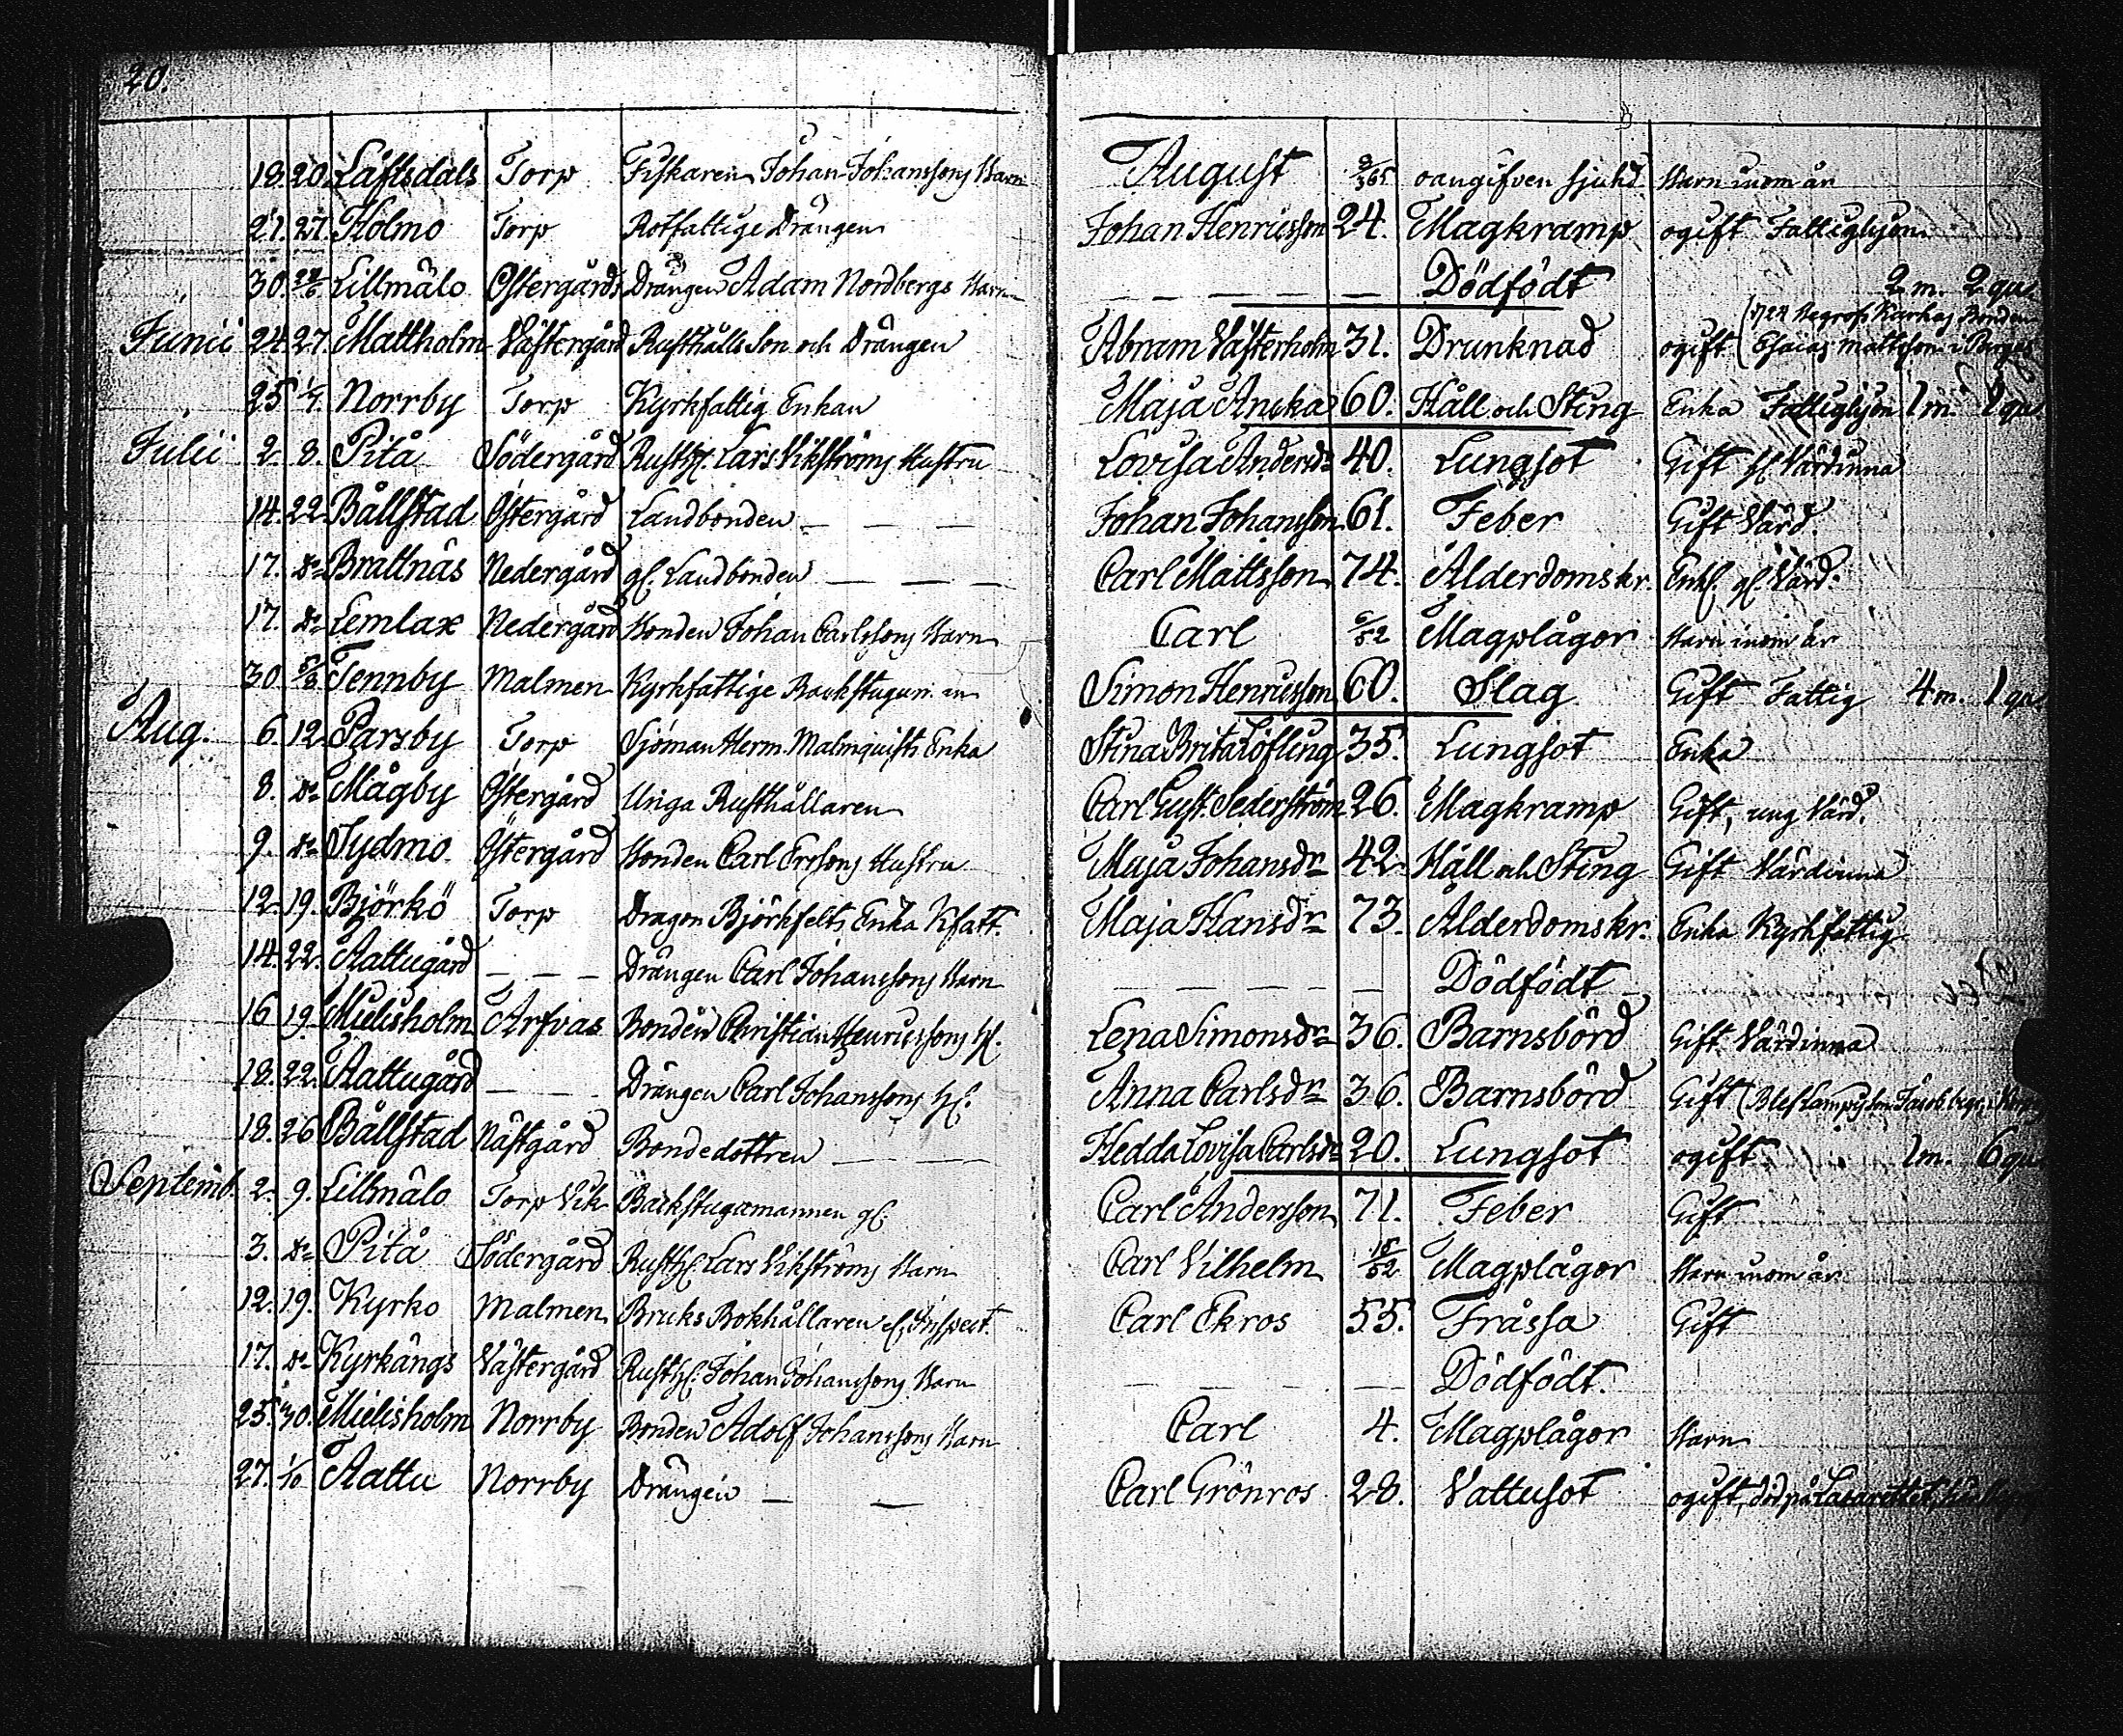 20.
18. 20. Låftsdals Torp Fiskaren Johan Johanssons Barn August 2/365 oangifven sjukd. Barn inom år
21. 27. Holmo Torp Rotfattige Drängen Johan Henricsson 24. Magkramp ogift Fattighjon
30. Lillmälo Östergårds Drängen Adam Nordbergs Barn — — — — — Dödfödt 2 m. 2 qu.
Junii 24. 27. Mattholm Västergård Rusthålls Son och Drängen Abram Västerholm 31. Drunknad ogift Esaias Mattsson i Pargas
25 1/7. Norrby Torp Kyrkfattig Enkan Maja Ancka 60. Håll och Sting Enka Fattighjon 1 m. 1 qu
Julii 2. 8. Pitå Södergård Rusth. Lars Vikströms Hustru Lovisa Andersdr 40. Lungsot Gift Värdinna
14. 22. Bållstad Östergård Landbonden — — — Johan Johansson 61. Feber Gift Värd.
17. Do Brattnäs Nedergård gl. Landbonden — — — Carl Mattsson 74. Ålderdomskr. Enkl. gl. Värd.
17. Do Lemlax Nedergård Bonden Johan Carlssons Barn Carl 6/52 Magplågor Barn inom år
30. 5/8 Tennby Malmen Kyrkfattige Backstugum. Simon Henricsson 60. Slag Gift Fattig 4 m. 1 qu
Aug. 6. 12. Parsby Torp Sjöman Herm. Malmquists Enka Stina Brita Löfling 35. Lungsot Enka
8. Do Mågby Östergård Unga Rusthållaren Carl Gust. Sederström 26. Magkramp Gift, ung Värd.
9. Do Sydmo Östergård Bonden Carl Erssons Hustru Maja Johansdr 42. Håll och Sting Gift Värdinna
12. 19. Björkö Torp Dragon Björkfelts Enka Kfatt. Maja Hansdr 73. Ålderdomskr. Enka Kyrkfattig
14. 22. Aattugård — — — Drängen Carl Johanssons Barn — — — — Dödfödt
16 19. Mielisholm Arfvas Bonden Christian Henricssons H. Lena Simonsdr 36. Barnsbörd Gift Värdinna
18. 22. Aattugård — — Drängen Carl Johanssons H. Anna Carlsdr 36. Barnsbörd Gift
18. 26 Bållstad Nästgård Bondedottren — — — Hedda Lovisa Carlsdr 20. Lungsot ogift. 1 m. 6 qu
Septemb. 2. 9. Lillmälo Torp Vik Backstugumannen gl. Carl Andersson 71. Feber Gift
3. Do Pitå Södergård Rusth. Lars Vikströms Barn Carl Vilhelm 15/52 Magplågor Barn inom år
12. 19. Kyrko Malmen Bruks Bokhållaren Inspect. Carl Ekros 55. Fråssa Gift
17. Do Kyrkängs Västergård Rusth. Johan Johanssons Barn — — — Dödfödt.
25. 30. Mielisholm Norrby Bonden Adolf Johanssons Barn Carl 4. Magplågor Barn
27. 1/10 Aattu Norrby Drängen — — Carl Grönros 28. Vattusot ogift, död på Lasarettet